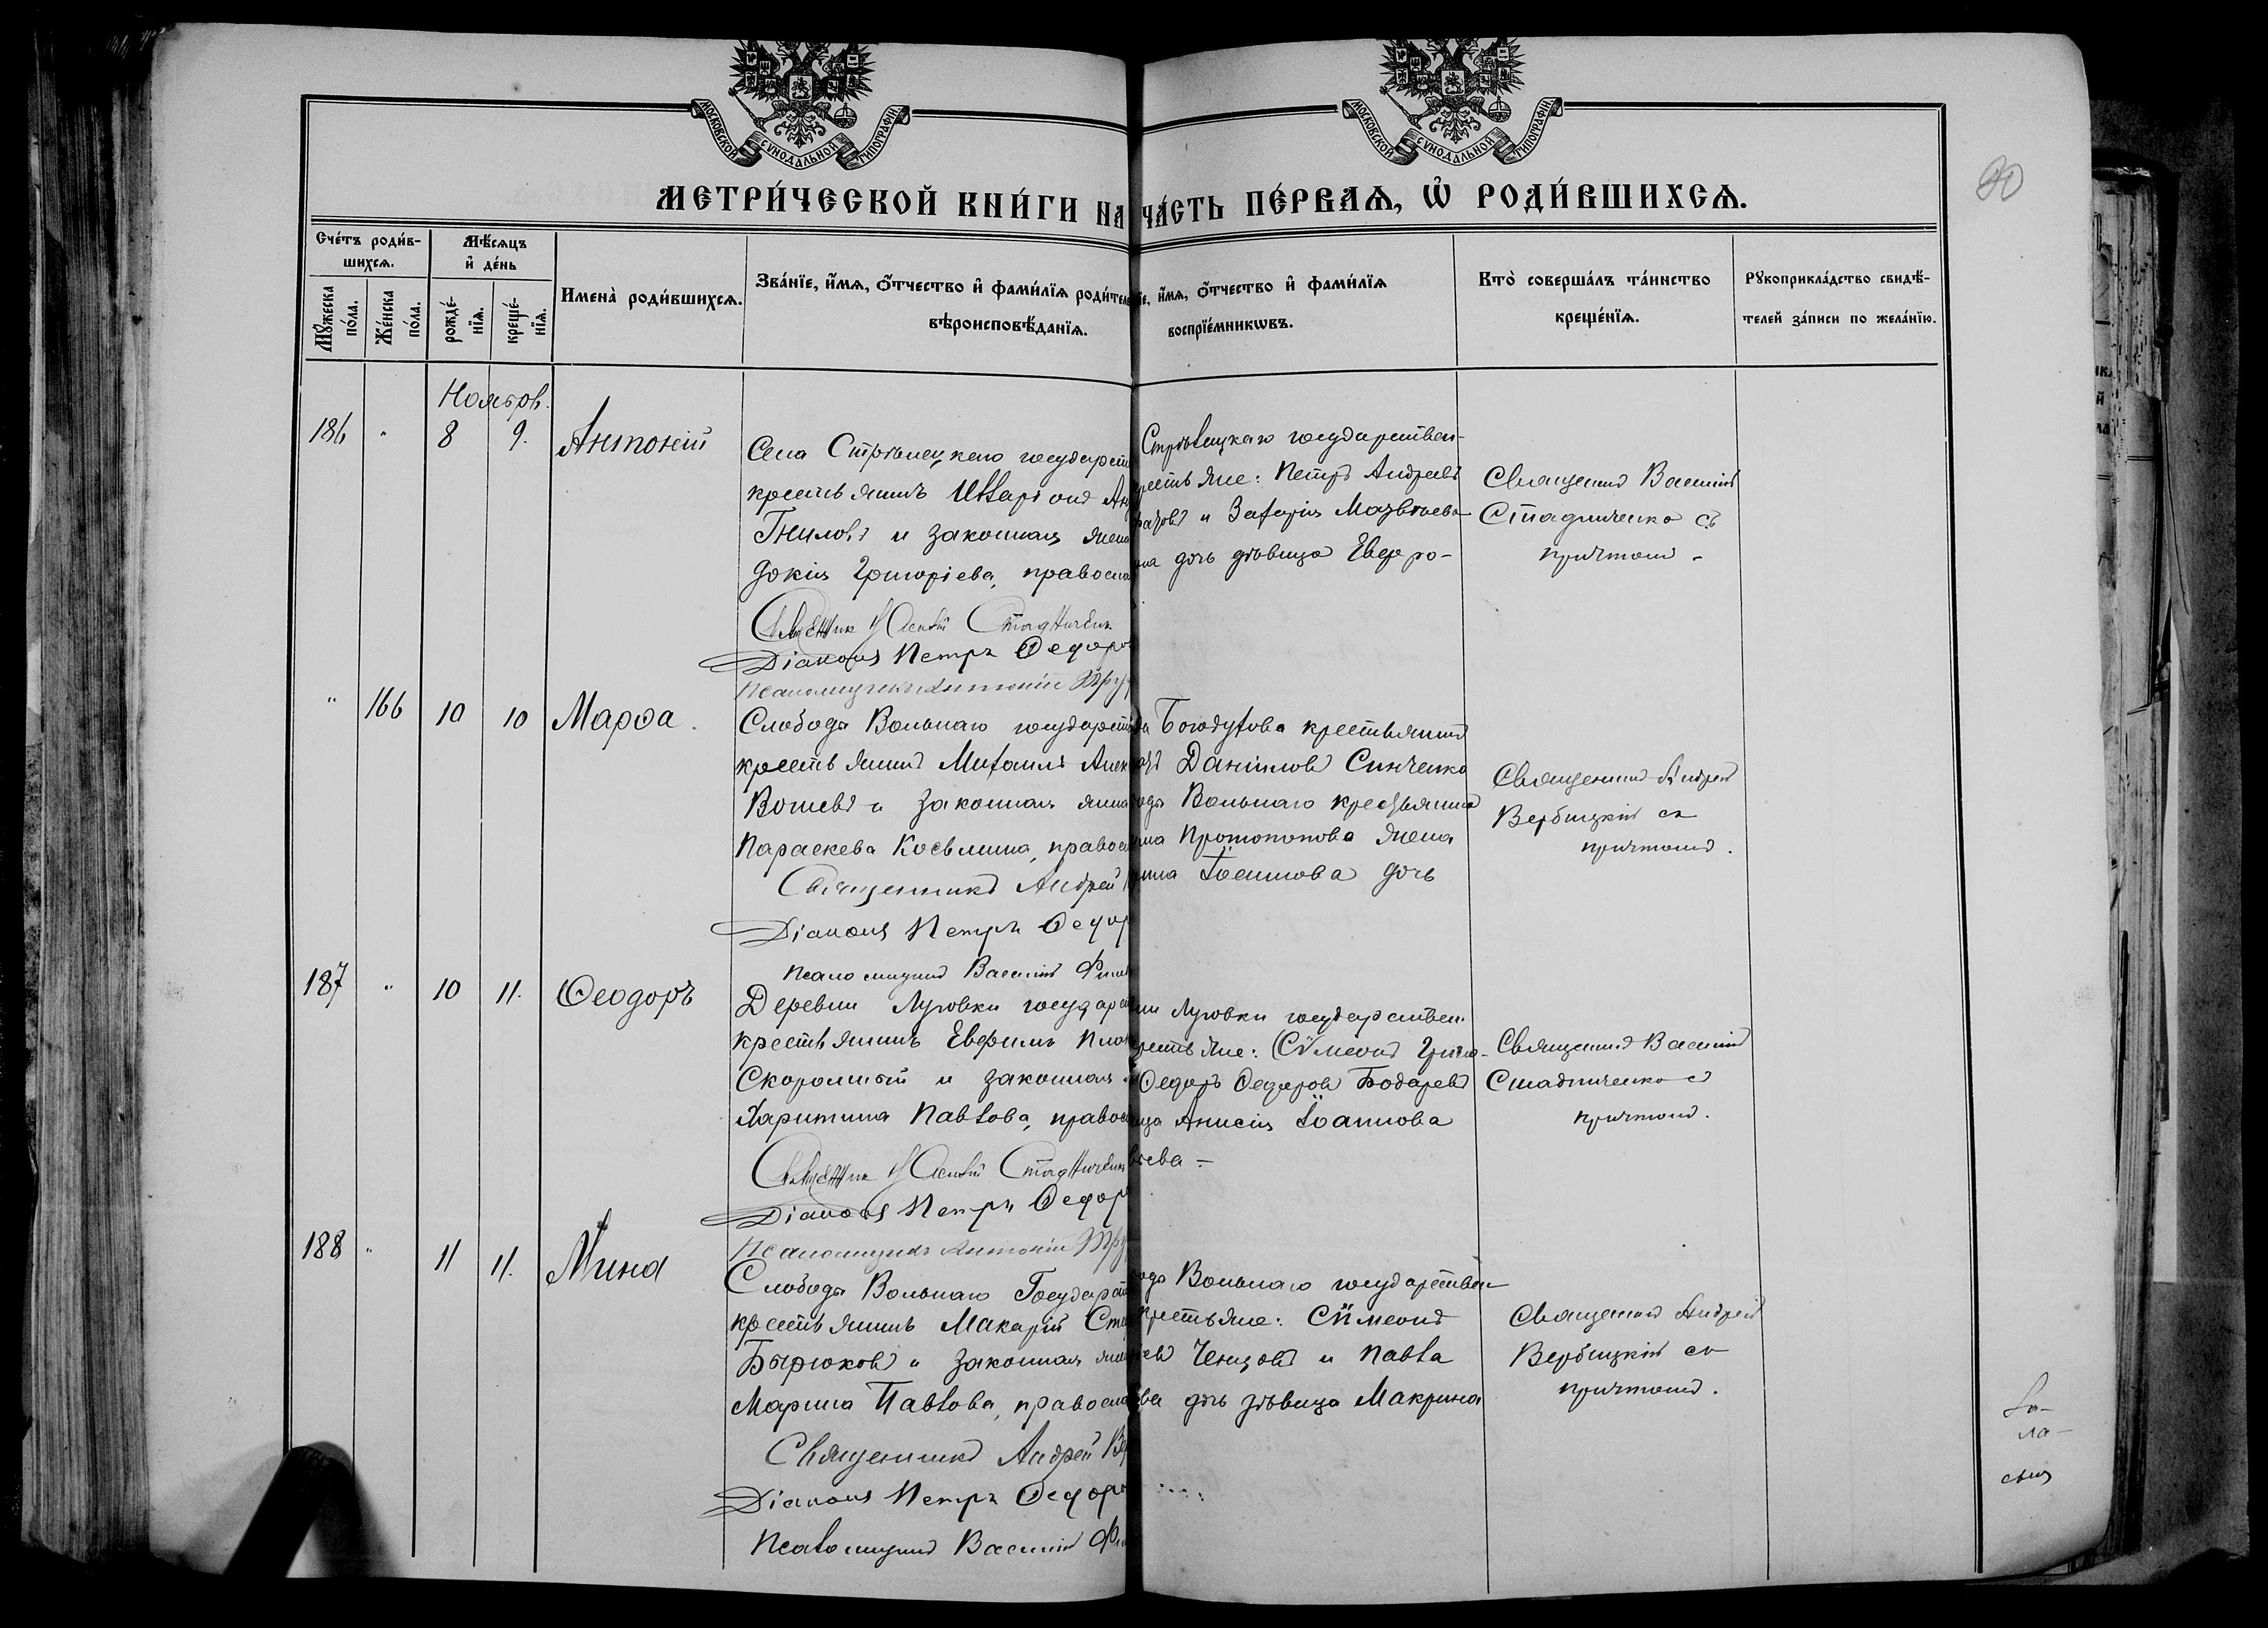 МОСКОВСКОЙ СѴНОДАЛЬНОЙ ТИПОГРАФІИ.
МОСКОВСКОЙ СѴНОДАЛЬНОЙ ТИПОГРАФІИ.
90
МЕТРИ́ЧЕСКОЙ КНИ́ГИ НА ЧА́СТЬ ПЕ́РВАѦ, Ѡ҆ РОДИ́ВШИХСѦ.
Сче́тъ роди́в-
шихсѧ.
Мꙋ́жеска
по́ла.
Же́нска
по́ла.
Мѣ́сѧцъ
и҆ де́нь
рожде́-
нїѧ.
креще́-
нїѧ.
Имена̀ роди́вшихсѧ.
Зва́нїе, и҆́мѧ, ѻ҆́тчество и҆ фами́лїѧ роди́теле
вѣроисповѣ́данїѧ.
їе, и҆́мѧ, ѻ҆́тчество и҆ фами́лїѧ
воспрїе́мникѡвъ.
Кто̀ соверша́лъ та́инство
креще́нїѧ.
Рꙋкоприкла́дство свидѣ́-
телей за́писи по жела́нїю.
Ноябрь.
186 " 8 9. Антоній
Села Стрѣлецкаго государств
крестьянинъ Илларіонъ Ан
Гниловъ и законная жена
докія Григоріева, правосла
Священник Василій Стадничен
Діаконъ Петръ Ѳедоро
Псаломщикъ Антоній Тру
Стрѣлецкаго государствен-
рестьяне: Петръ Андреевъ
и Захарія Матвѣева
на дочь дѣвица Евфро-
Священникъ Василій
Стадниченко съ
причтомъ -
" 166 10 10 Марѳа.
Слободы Вольнаго государств
крестьянинъ Михаилъ Алек
и законная жена
Параскева Косьмина, правосл
Священникъ Андрей
Діаконъ Петръ Ѳедор
Псаломщикъ Василій Фил
да Богодухова крестьянинъ
Даніиловъ Синченко
оды Вольнаго крестьянина
Протопопова жена
Іоаннова дочь
Священникъ Андрей
Вербицкій съ
причтомъ.
187 " 10 11. Ѳеодоръ
Деревни Луговки государств
крестьянинъ Евфимъ Плат
и законная
Харитина Павлова, правосл
Священник Василій Стадничен
Діаконъ Петръ Ѳедор
Псаломщикъ Антоній Тру
ни Луговки государствен.
рестьяне: Сѵмеонъ Григо-
Ѳедоръ Ѳедоровъ Бодаревъ
ица Анисія Іоаннова
ьева -
Священникъ Василій
Стадниченко съ
причтомъ.
188 " 11 11. Мина
Слободы Вольнаго Государств
крестьянинъ Макарій Сте
Бырюковъ и законная жен
Марина Павлова, правосла
Священникъ Андрей Ве
Діаконъ Петръ Ѳедоро
Псаломщикъ Василій Фи
оды Вольнаго государствен-
крестьяне: Сѵмеонъ
евъ Ченцовъ и Павла
ва дочь дѣвица Макрина
Священникъ Андрей
Вербицкій съ
причтомъ.
ла-